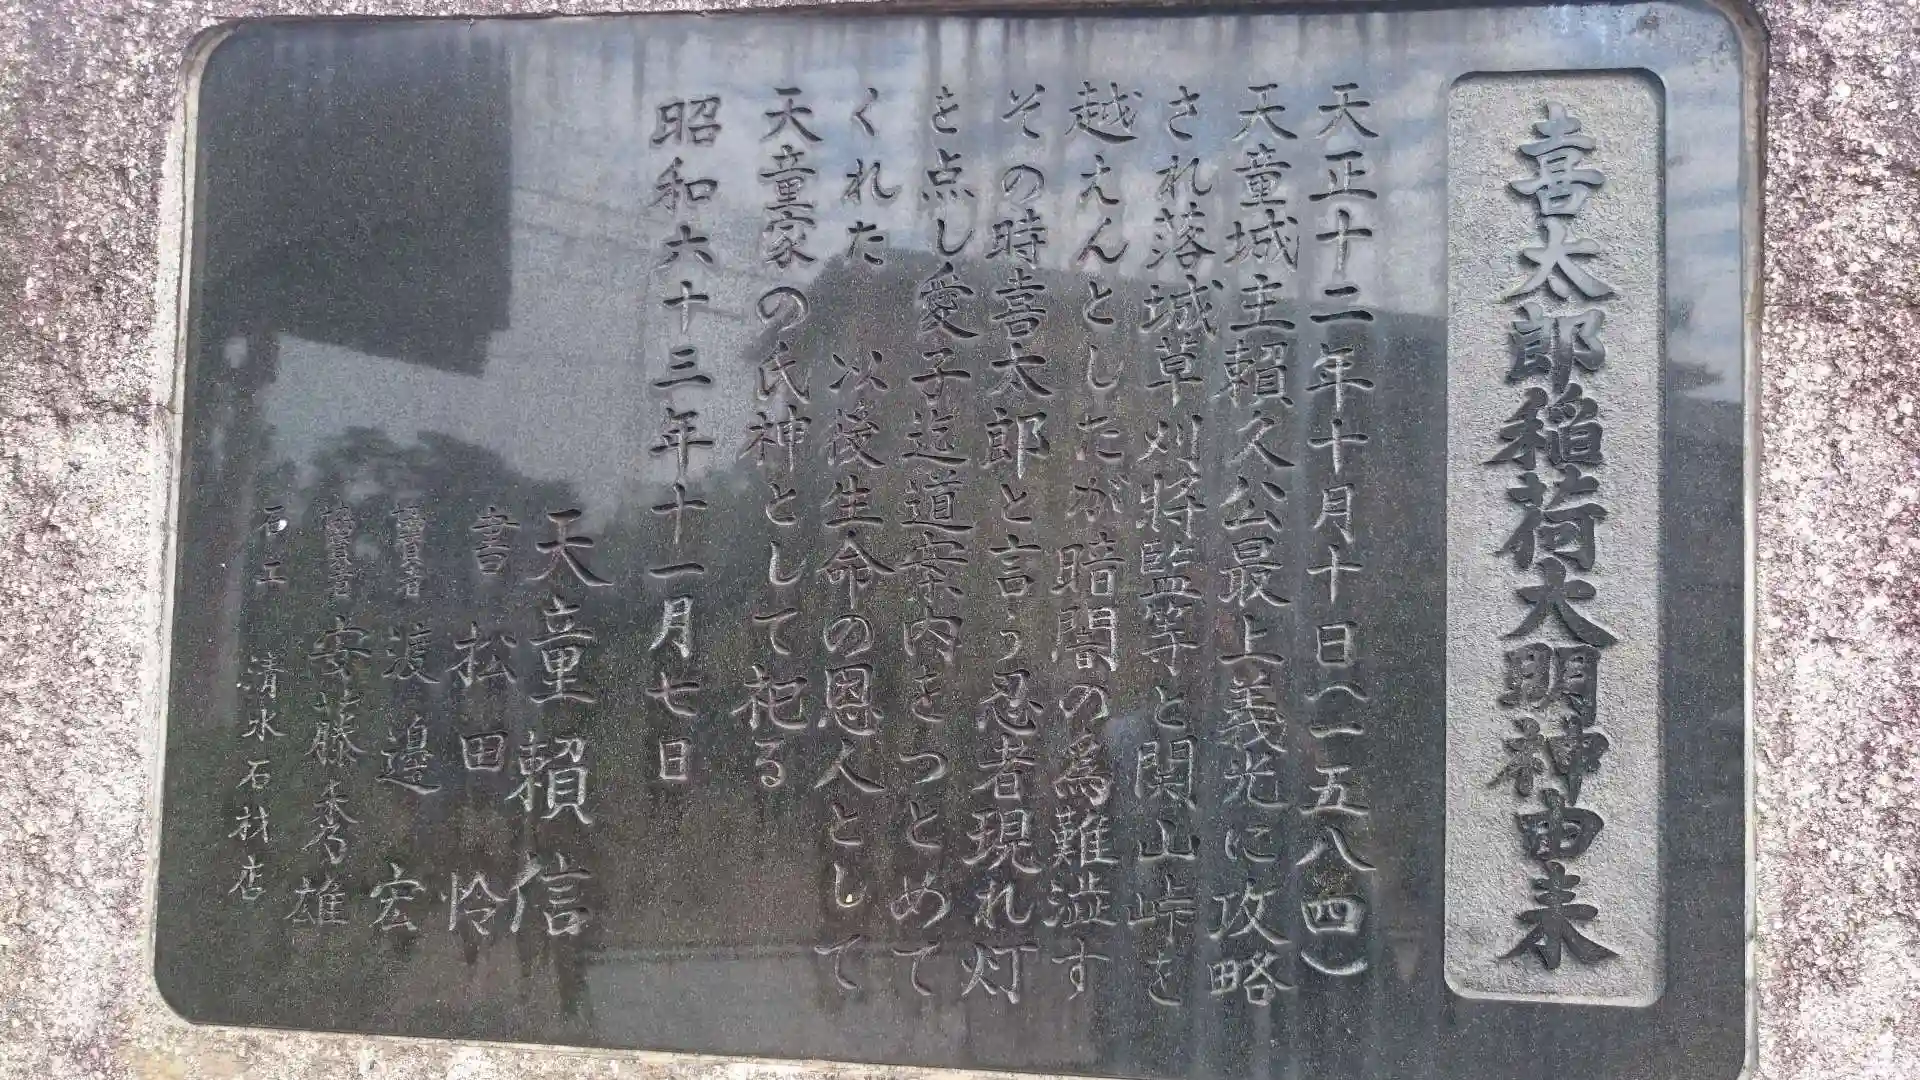 喜太郎稲荷大明神由来
天正十二年十月十日(一五八四)
天童城主頼久公最上義光に攻略
され落城草刈将監等と関山峠を
越えんとしたが暗闇の為難澁す
その時喜太郎と言う忍者現れ灯
を点し愛子迄道案内をつとめて
くれた　以後生命の恩人として
天童家の氏神として祀る
昭和六十三年十一月七日
天童頼信
書 松田怜
協賛者 渡邊宏
協賛者 安藤秀雄
石工 清水石材店